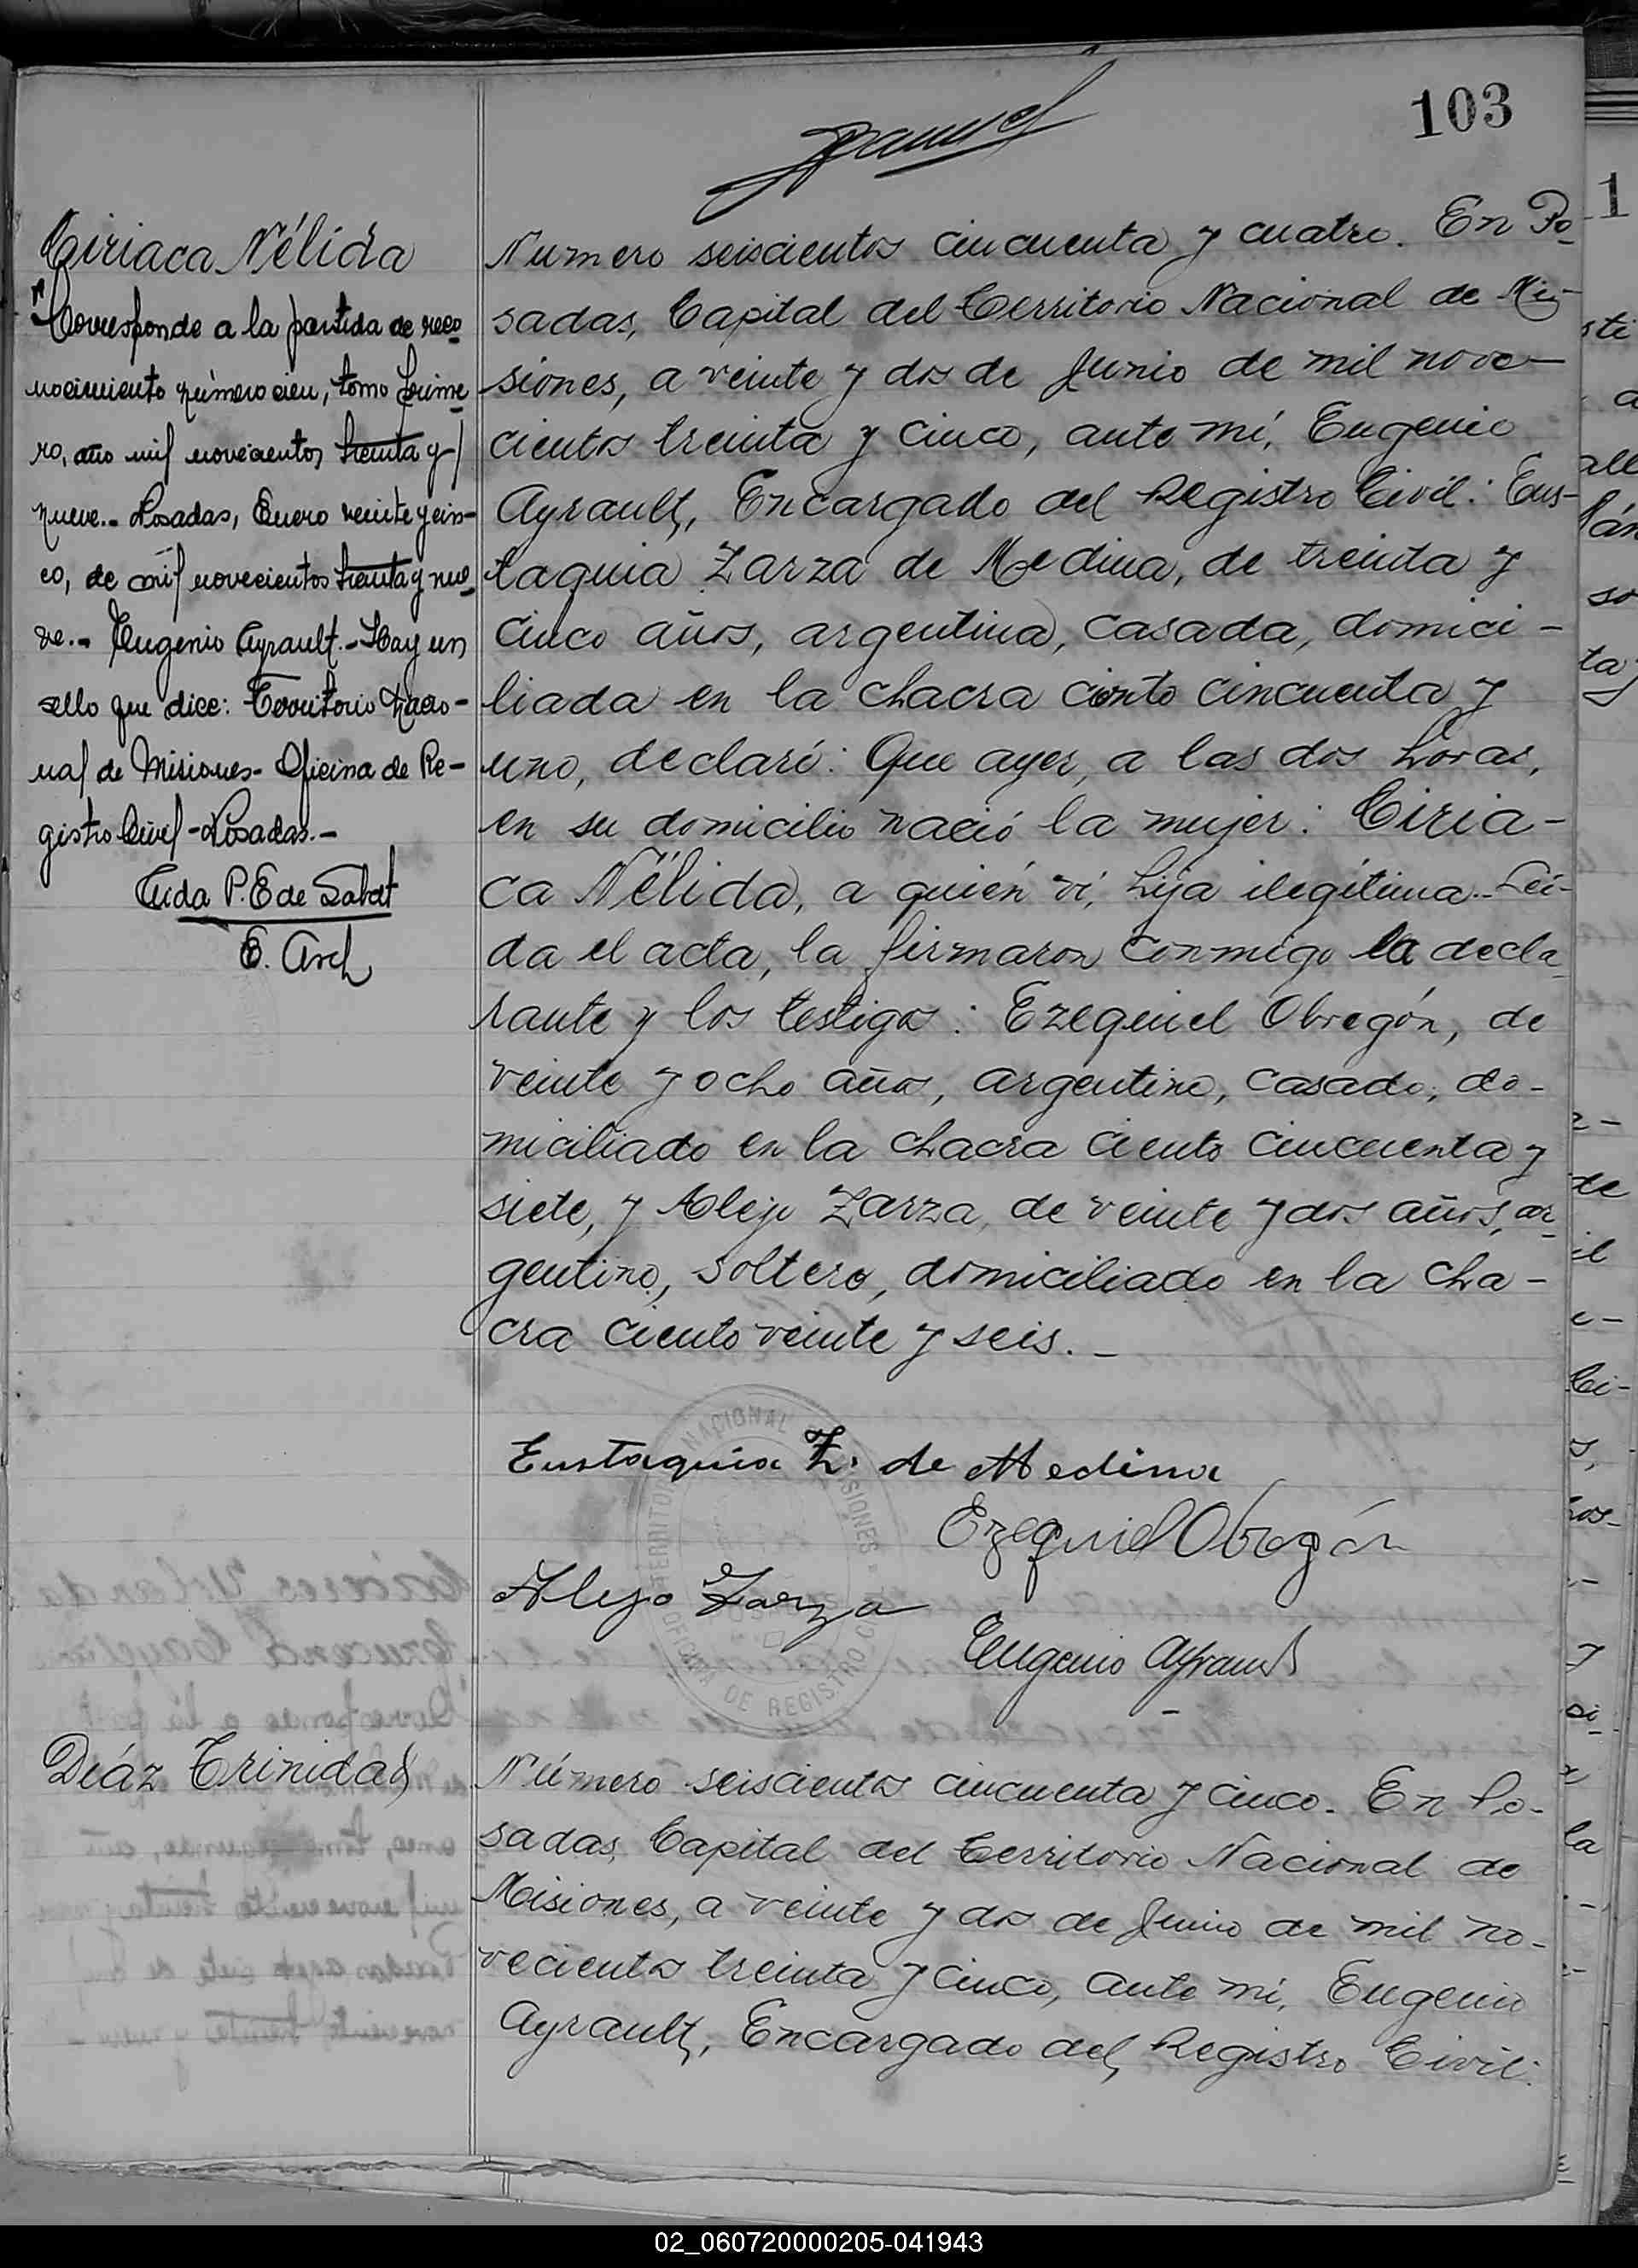 103
Ciriaca Nélida
Corresponde a la partida de reco
nocimiento número cien, tomo prime
ro, año mil novecientos treinta y
nueve.- Posadas, Enero veinte y cin-
co, de mil novecientos treinta y nue
ve.- Eugenio Ayrault.- Hay un
sello que dice: Territorio Nacio-
nal de Misiones- Oficina de Re-
gistro Civil - Posadas.-
E. Asch
Numero seiscientos cincuenta y cuatro. En Po-
sadas, Capital del Territorio Nacional de Mi-
siones, a veinte y dos de Junio de mil nove-
cientos treinta y cinco, ante mí, Eugenio
Ayrault, Encargado del Registro Civil: Eus-
taquia Zarza de Medina, de treinta y
cinco años, argentina, casada, domici-
liada en la chacra ciento cincuenta y
uno, declaró: Que ayer, a las dos horas,
en su domicilio nació la mujer: Ciria-
ca Nélida, a quién ví, hija ilegítima.- Leí-
da el acta, la firmaron conmigo la decla-
rante y los testigos: Ezequiel Obregón, de
veinte y ocho años, argentino, casado, do-
miciliado en la chacra ciento cincuenta y
siete, y Alejo Zarza, de veinte y dos años, ar-
gentino, soltero, domiciliado en la cha-
cra ciento veinte y seis.-
Eustaquia Z. de Medina
Ezequiel Obregón
Alejo Zarza
Eugenio Ayrault
TERRITORIO NACIONAL DE MISIONES
OFICINA DE REGISTRO CIVIL
Diáz Trinidad
Número seiscientos cincuenta y cinco. En Po-
sadas, Capital del Territorio Nacional de
Misiones, a veinte y dos de Junio de mil no-
vecientos treinta y cinco, ante mí, Eugenio
Ayrault, Encargado del Registro Civil:
02_060720000205-041943